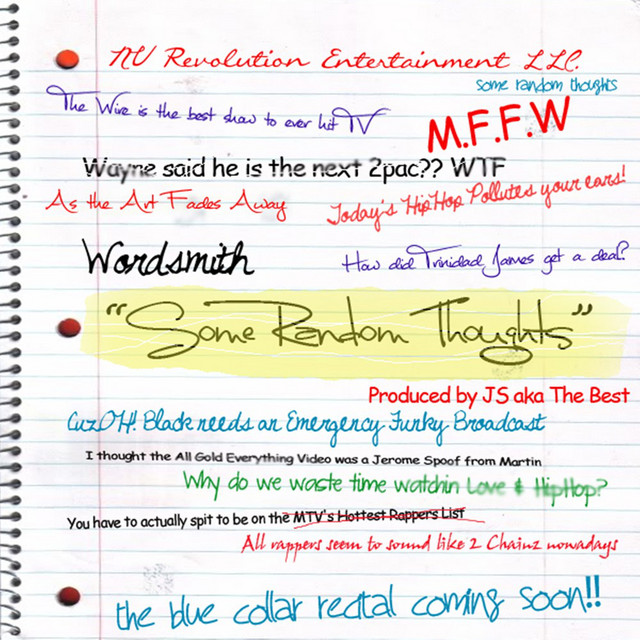 NU Revolution Entertainment LLC.
some random thoughts
The Wire is the best show to ever hit TV
M.F.F.W
Wayne said he is the next 2pac?? WTF
As the Art Fades Away
Today's HipHop Pollutes your ears!
Wordsmith
How did Trinidad James get a deal?
"Some Random Thoughts"
Produced by JS aka The Best
CuzOH! Black needs an Emergency Funky Broadcast
I thought the All Gold Everything Video was a Jerome Spoof from Martin
Why do we waste time watchin Love & HipHop?
You have to actually spit to be on the MTV's Hottest Rappers List
All rappers seem to sound like 2 Chainz nowadays
the blue collar recital coming soon!!